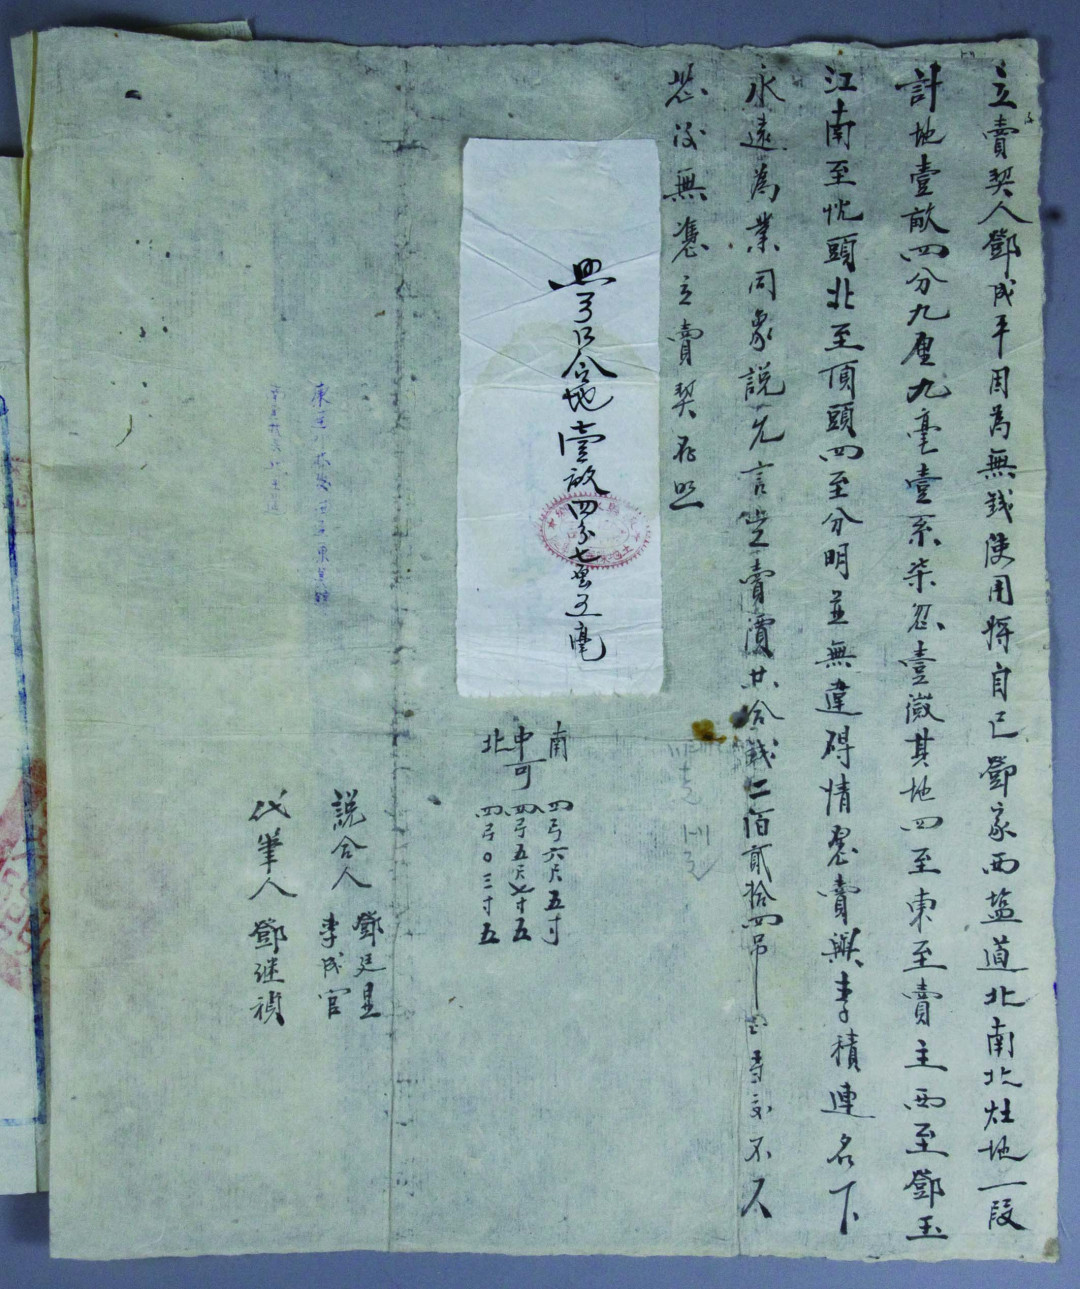 立賣契人鄧成平因為無錢使用將自己鄧家西塩道北南北灶地一段
計地壹畝四分九厘九毫壹系柒忽壹微其地四至東至賣主西至鄧玉
江南至忱頭北至頂頭四至分明並無違碍情愿賣與李積連名下
永遠為業同衆説允言定賣價共合錢二佰貳拾四吊交不欠
恐後無憑立賣契存照
弓口合地壹畝四分七厘五毫
南 四弓六尺五寸
中可 四弓五尺七寸五
北 四弓〇三寸五
説合人 鄧廷显 李成官
代筆人 鄧继禎